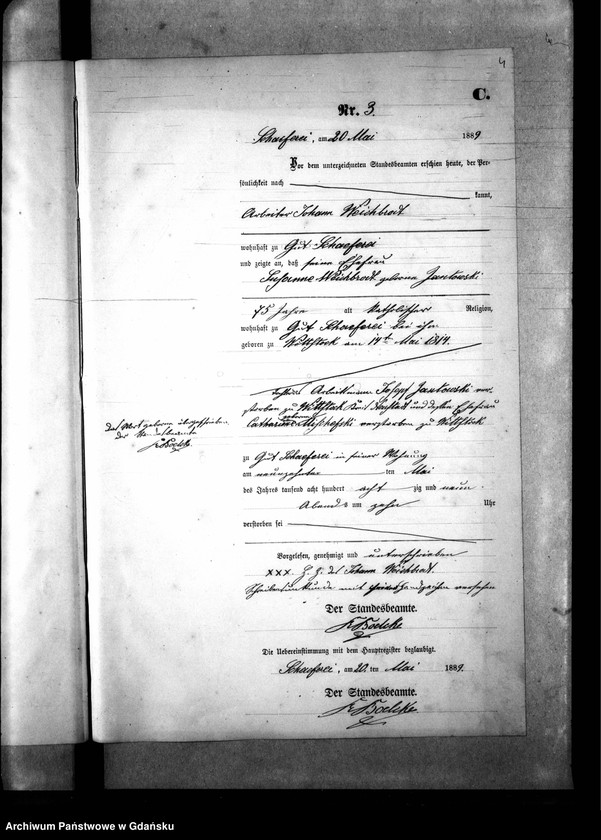 4
C.
Nr. 3.
Schaeferei, am 20 Mai 1889
Vor dem unterzeichneten Standesbeamten erschien heute, der Per-
sönlichkeit nach kannt,
Arbeiter Johann Weichbrodt
wohnhaft zu Gut Schaeferei
und zeigte an, daß seine Ehefrau
Susanne Weichbrodt geborne Jankowski
75 Jahre alt katholischer Religion,
wohnhaft zu Gut Schaeferei bei ihm
geboren zu Wittstock am 14ten Mai 1814.
Arbeitmann Josef Jankowski ver-
storben zu Wittstock und dessen Ehefrau
geborne
Catharina verstorben zu Wittstock
Das Wort geborne übergeschrieben
Der Standesbeamte
K Boelcke
zu Gut Schaeferei in seiner Wohnung
am neunzehnten ten Mai
des Jahres tausend acht hundert acht zig und neun
Abends um zehn Uhr
verstorben sei
Vorgelesen, genehmigt und unterschrieben
xxx. H. Z. des Johann Weichbrodt.
Schreibensunkunde mit Handzeichen versehen
Der Standesbeamte.
K Boelcke
Die Uebereinstimmung mit dem Hauptregister beglaubigt.
Schaeferei, am 20 ten Mai 1889.
Der Standesbeamte.
K Boelcke
Archiwum Państwowe w Gdańsku